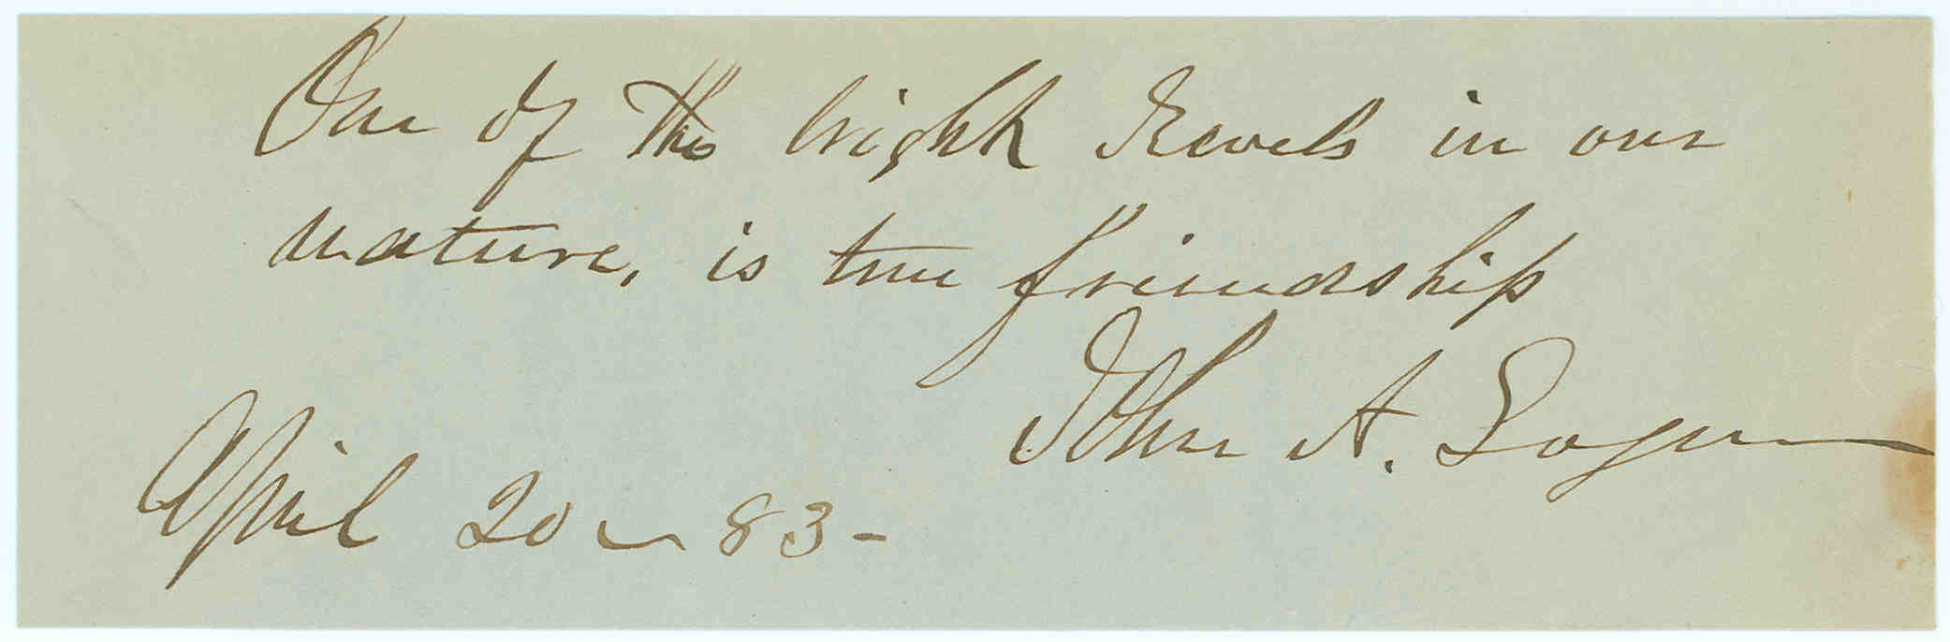 One of the bright Jewels in our
nature, is true friendship
John A. Logan
April 20 - 83 -